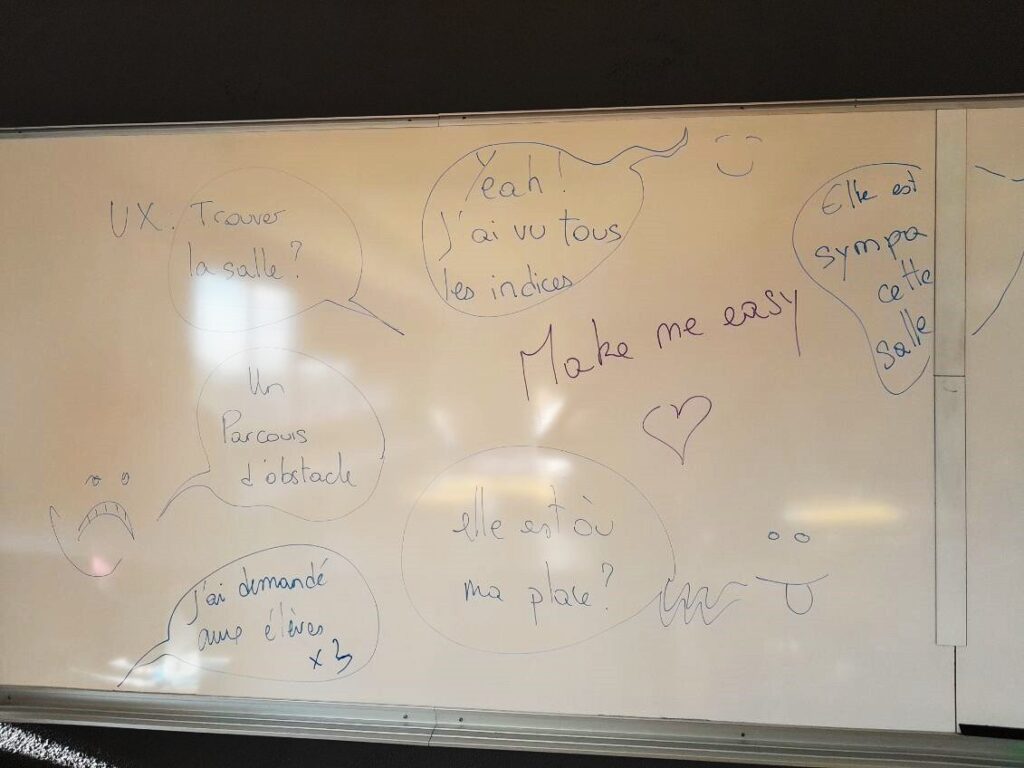 UX. Trouver
la salle?
Yeah!
J'ai vu tous
les indices
Elle est
sympa
cette
salle
Make me easy
Un
Parcours
d'obstacle
elle est où
ma place?
J'ai demandé
aux élèves
x3